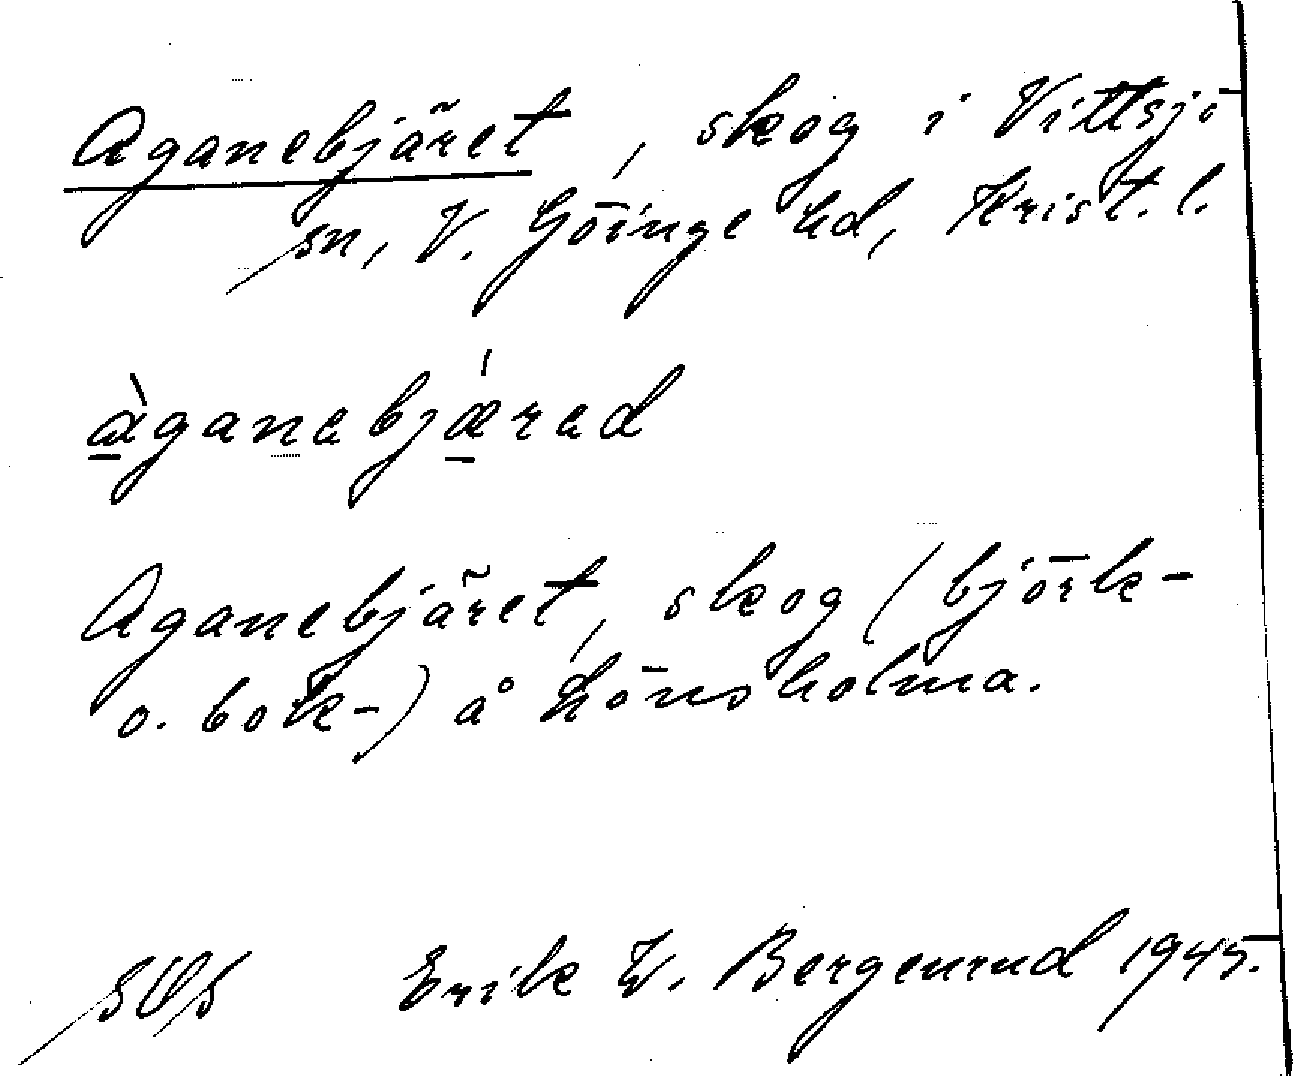 Aganebjäret, skog i Vittsjö
sn, V. Göinge hd, Krist. l.
àganebjǽred
Aganebjäret, skog (björk-
o. bok-) å Lönsholma.
Erik W. Bergenrud 1945.